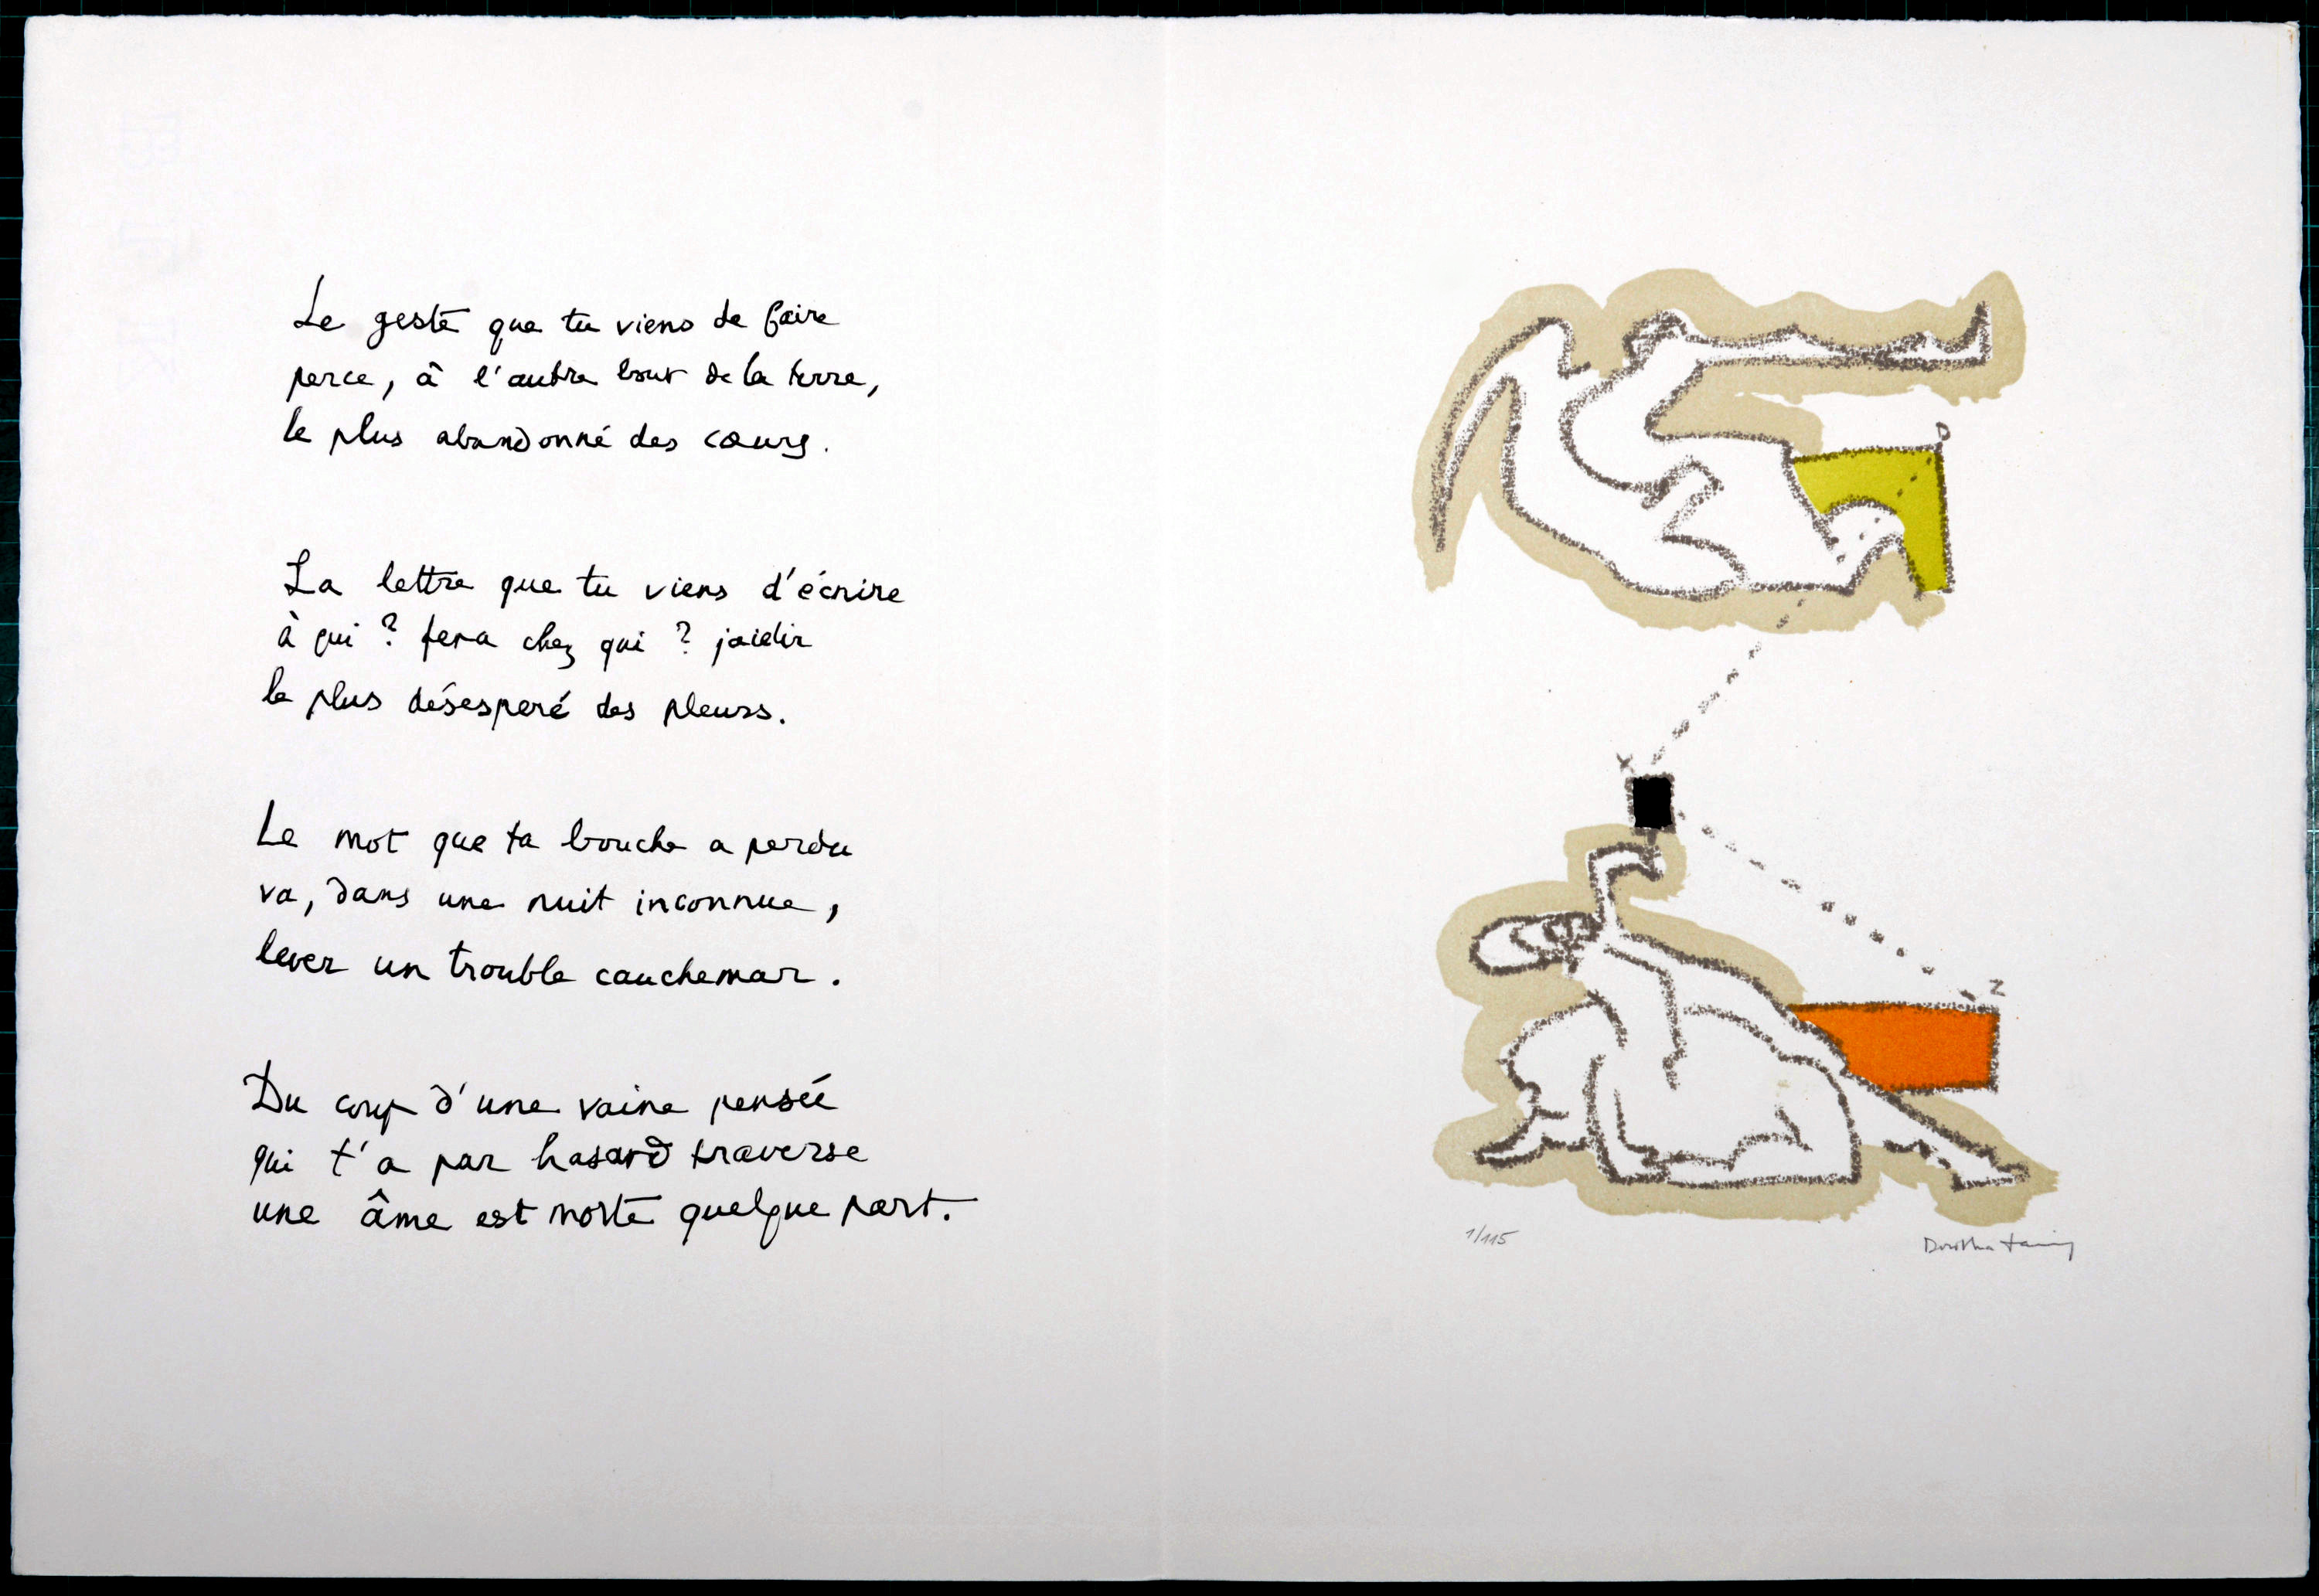 Le geste que tu viens de faire
perce, à l'autre bout de la terre,
le plus abandonné des cœurs.
La lettre que tu viens d'écrire
à qui ? fera chez qui ? jaidir
le plus désesperé des pleurs.
Le mot que ta bouche a perdu
va, dans une nuit inconnue,
lever un trouble cauchemar.
Du coup d'une vaine pensée
qui t'a par hasard traverse
une âme est morte quelque part.
1/115
Dorothea Tanning